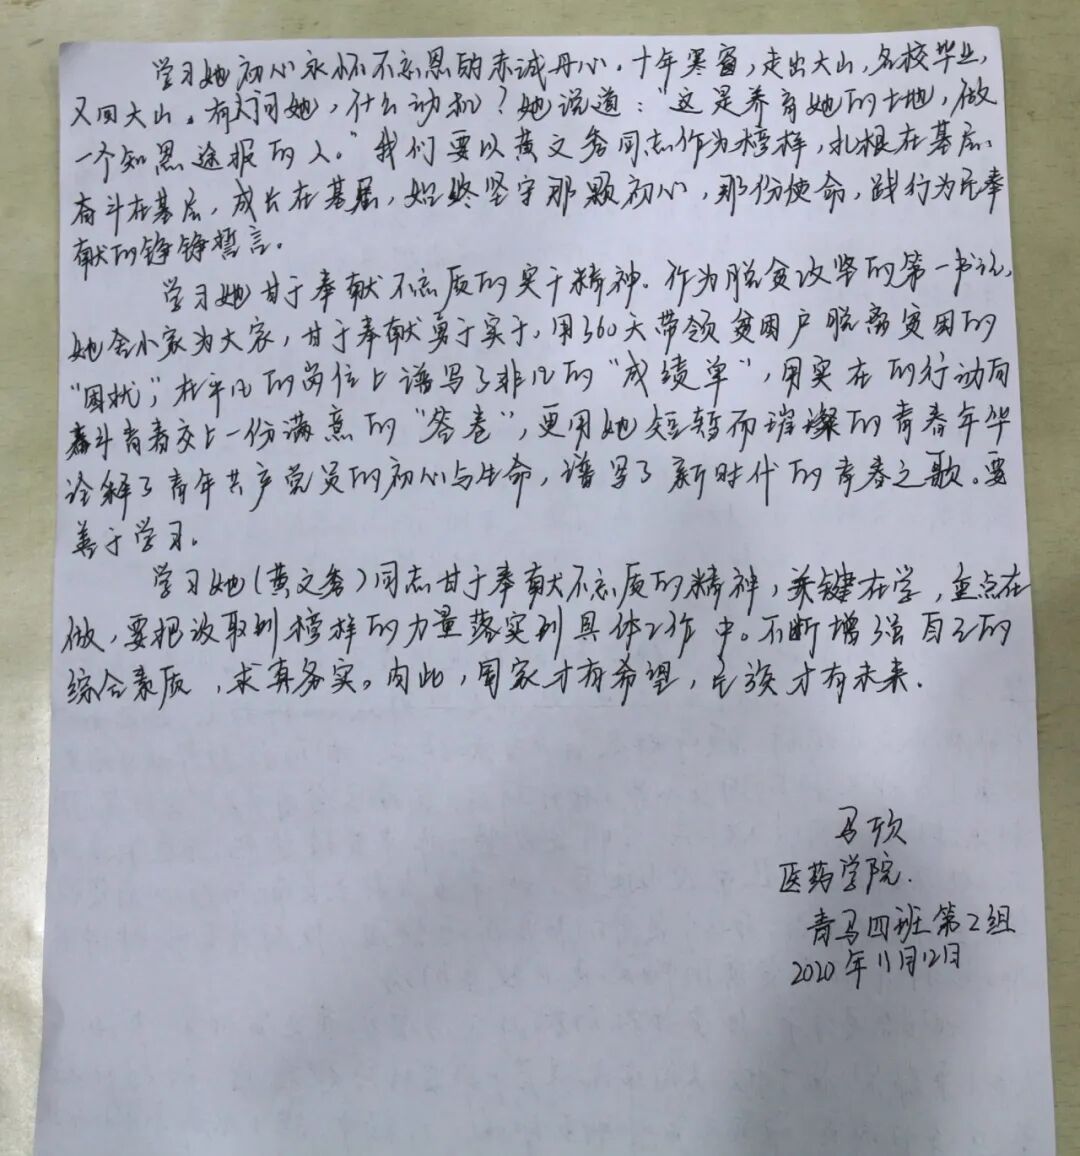 学习她初心永怀不忘恩的赤诚丹心。十年寒窗，走出大山，名校毕业，
又回大山。有人问她，什么动机？她说道：“这是养育她的土地，做
一个知恩途报的人。”我们要以黄文秀同志作为榜样，扎根在基层、
奋斗在基层，成长在基层，始终坚守那颗初心，那份使命，践行为民奉
献的铮铮誓言。
学习她甘于奉献不忘质的实干精神。作为脱贫攻坚的第一书记，
她舍小家为大家，甘于奉献勇于实干，用360天带领贫困户脱离贫困的
“困扰”，在平凡的岗位上谱写了非凡的“成绩单”，用实在的行动向
奋斗青春交上一份满意的“答卷”，更用她短暂而璀璨的青春年华
诠释了青年共产党员的初心与生命，谱写了新时代的青春之歌。要
善于学习。
学习她（黄文秀）同志甘于奉献不忘质的精神，关键在学，重点在
做，要把汲取到榜样的力量落实到具体工作中。不断增强自己的
综合素质，求真务实。由此，国家才有希望，民族才有未来.
马欣
医药学院.
青马四班第2组
2020年11月12日